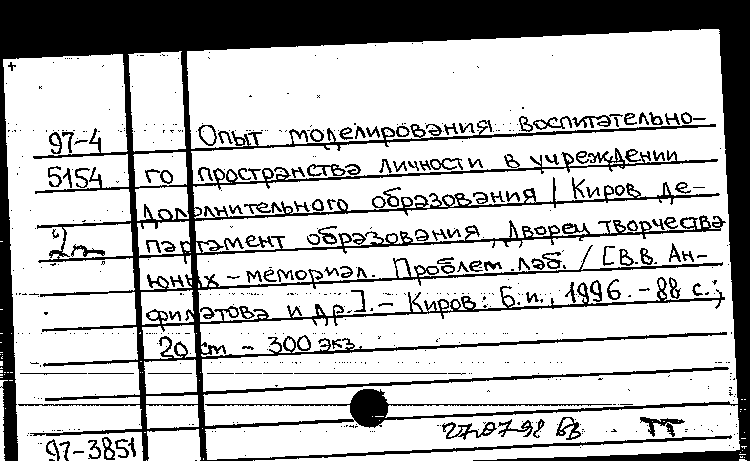 97-4 Опыт моделирования воспитательно-
5154 го пространства личности в учреждении
дополнительного образования / Киров. де-
2п партамент образования, Дворец творчества
юных - мемориал. Проблем. лаб. / [В.В. Ан-
филатова и др.]. - Киров: Б.и., 1996. - 88 с.;
20 см. - 300 экз.
27.07.98 ТТ
97-3851